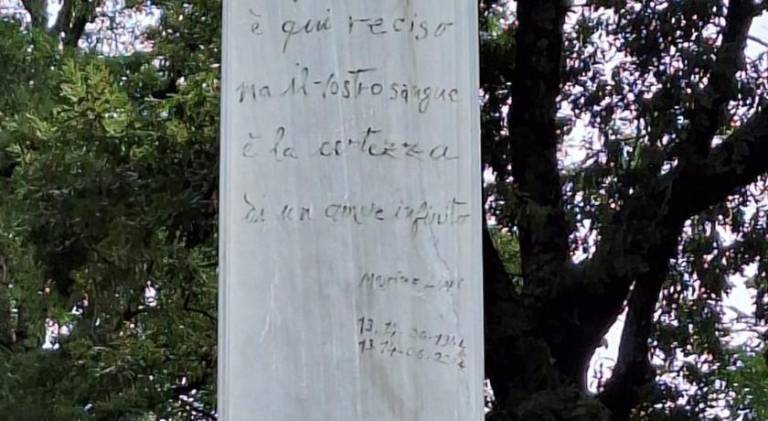 è qui reciso
ma il vostro sangue
è la certezza
di un amore infinito
13.14-06-1944
13.14-06.2014